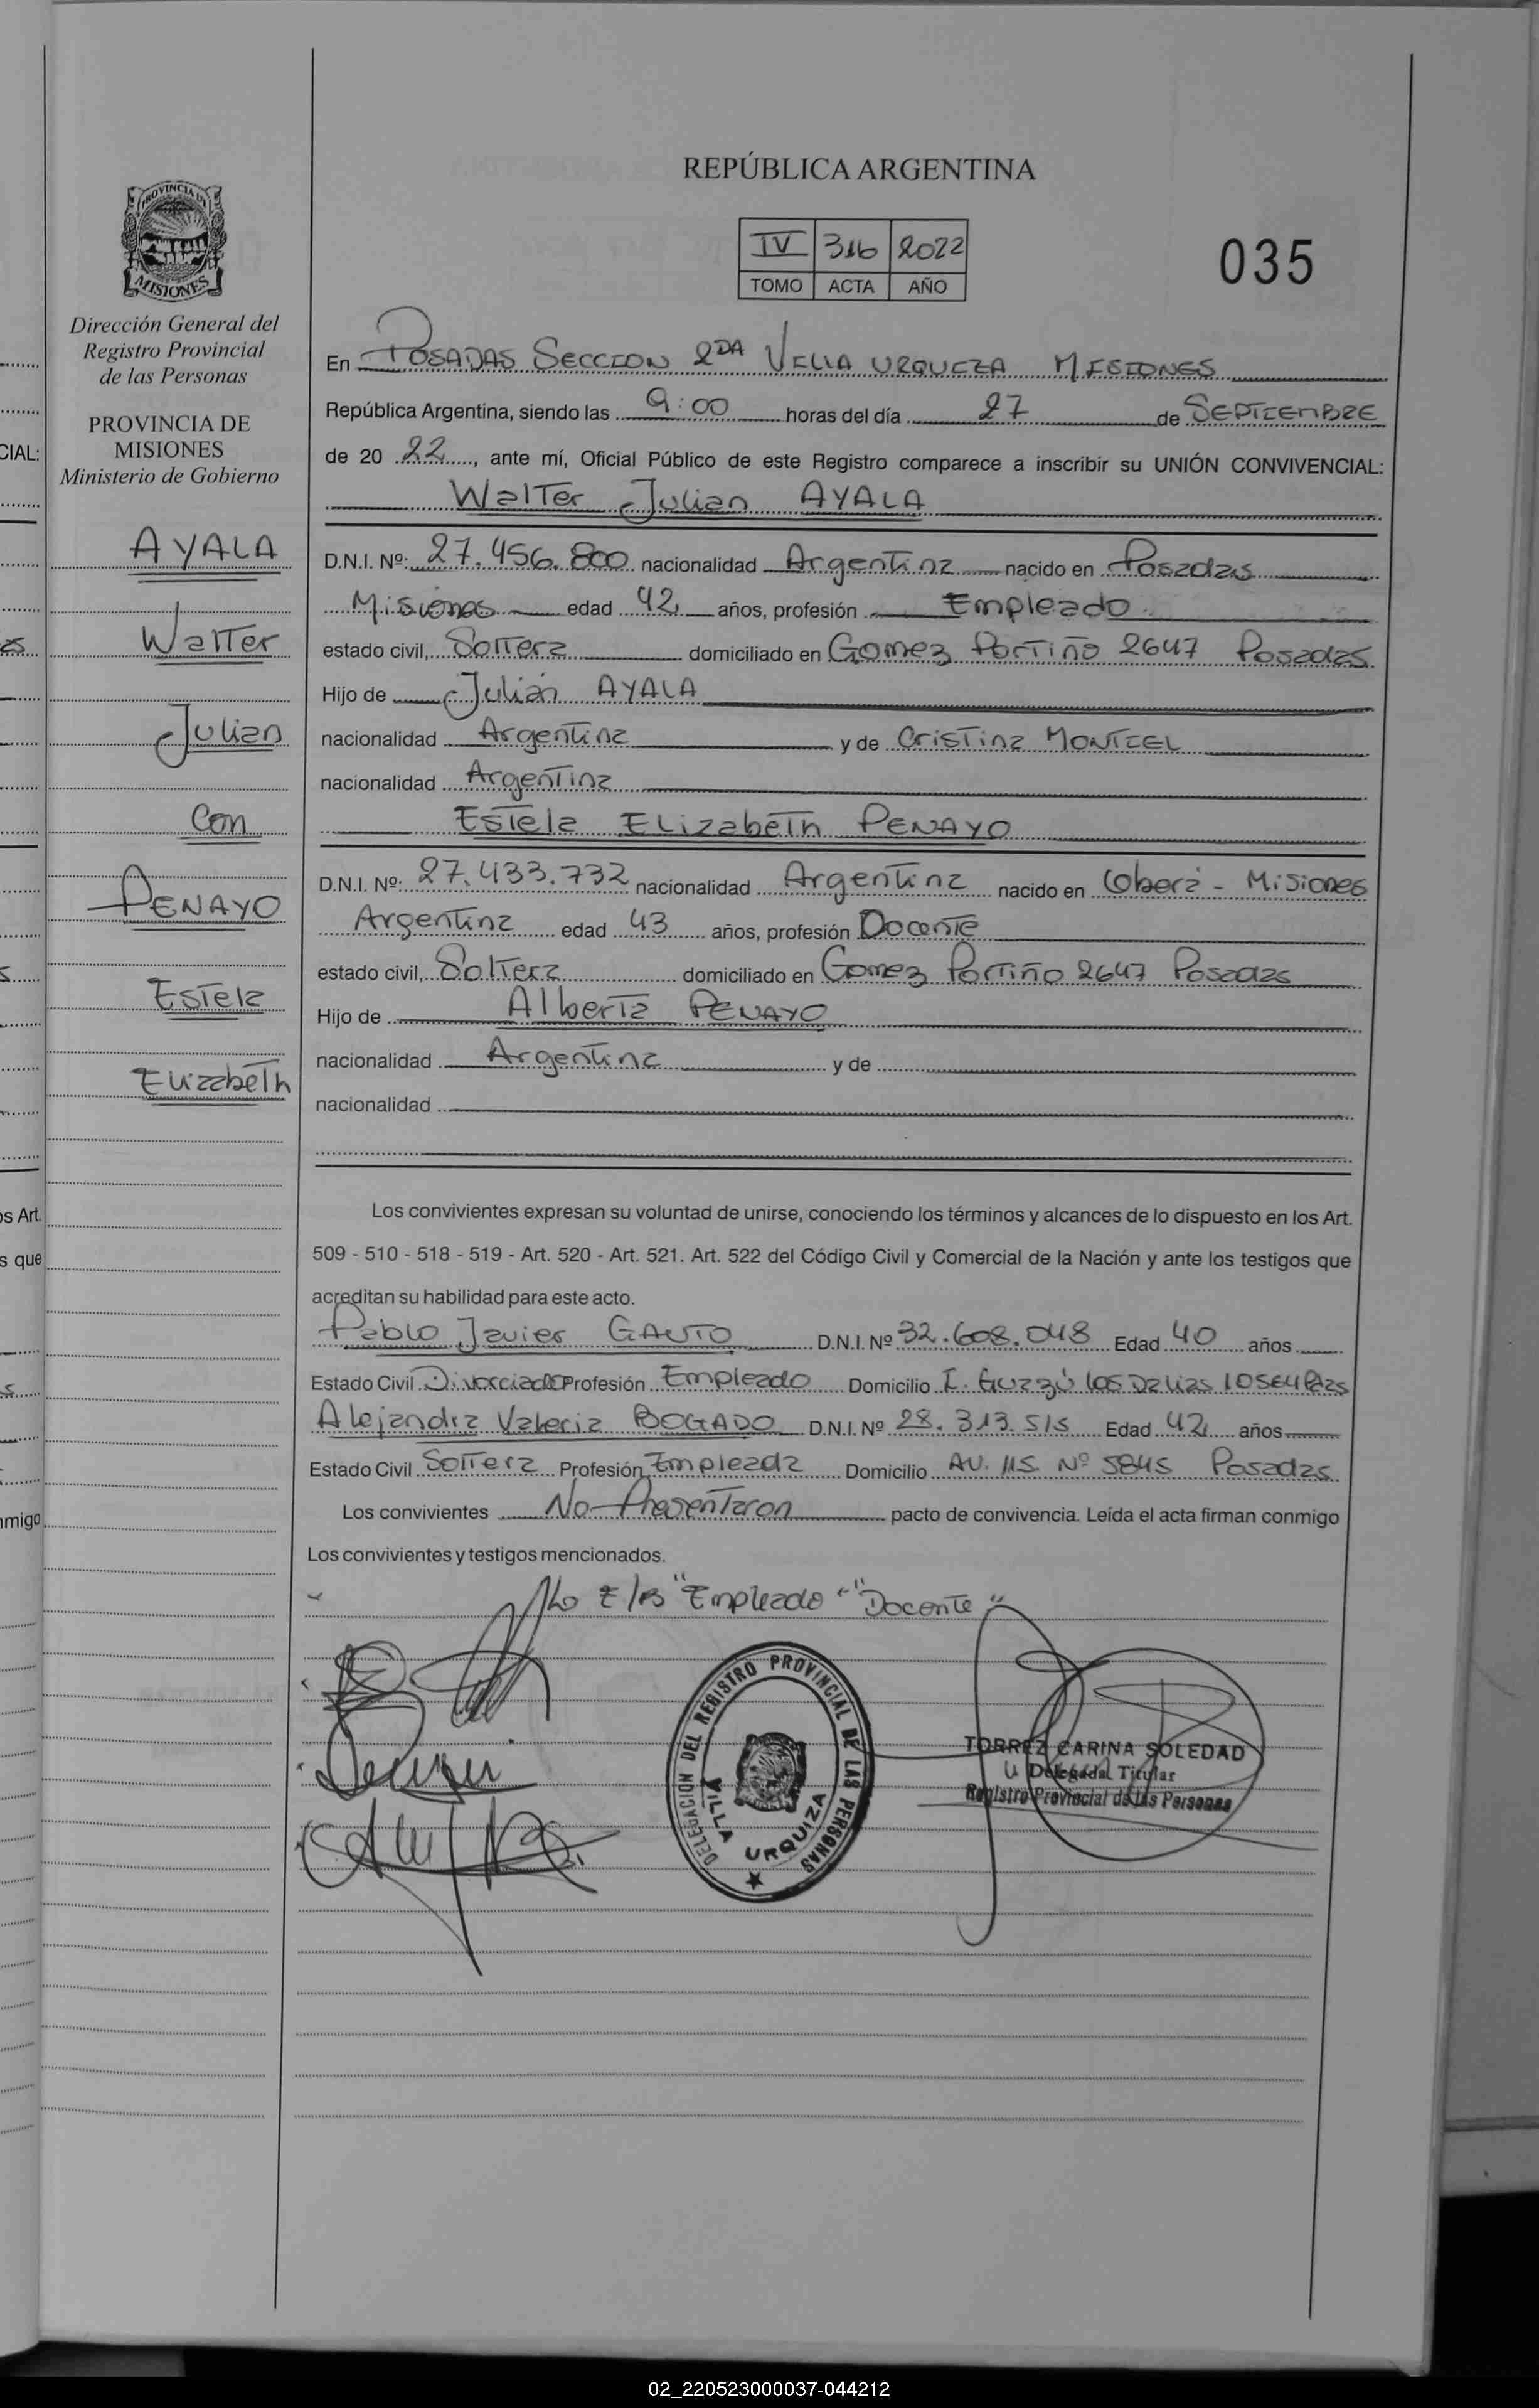 REPÚBLICA ARGENTINA
IV 316 2022
TOMO ACTA AÑO
035
PROVINCIA DE
MISIONES
Dirección General del
Registro Provincial
de las Personas
PROVINCIA DE
MISIONES
Ministerio de Gobierno
AYALA
Walter
Julian
Con
PENAYO
Estela
Elizabeth
En POSADAS SECCION 2DA VILLA URQUIZA MISIONES
República Argentina, siendo las 9:00 horas del día 27 de SEPTIEMBRE
de 20 22, ante mí, Oficial Público de este Registro comparece a inscribir su UNIÓN CONVIVENCIAL:
Walter Julian AYALA
D.N.I. Nº: 27.456.800 nacionalidad Argentina nacido en Posadas
Misiones edad 42 años, profesión Empleado
estado civil, Soltera domiciliado en Gomez Portiño 2647 Posadas
Hijo de Julián AYALA
nacionalidad Argentina y de Cristina MONTIEL
nacionalidad Argentina
Estela Elizabeth PENAYO
D.N.I. Nº: 27.433.732 nacionalidad Argentina nacido en Oberá - Misiones
Argentina edad 43 años, profesión Docente
estado civil, Soltera domiciliado en Gomez Portiño 2647 Posadas
Hijo de Alberta PENAYO
nacionalidad Argentina y de
nacionalidad
Los convivientes expresan su voluntad de unirse, conociendo los términos y alcances de lo dispuesto en los Art.
509 - 510 - 518 - 519 - Art. 520 - Art. 521. Art. 522 del Código Civil y Comercial de la Nación y ante los testigos que
acreditan su habilidad para este acto.
Pablo Javier GAUTO D.N.I. Nº 32.608.048 Edad 40 años
Estado Civil Divorciado Profesión Empleado Domicilio I. Guazú las Dalias
Alejandra Valeria BOGADO D.N.I. Nº 28.313.515 Edad 42 años
Estado Civil Soltera Profesión Empleada Domicilio AV. 115 Nº 5845 Posadas
Los convivientes No Presentaron pacto de convivencia. Leída el acta firman conmigo
Los convivientes y testigos mencionados.
E/B "Empleado" "Docente"
DELEGACION DEL REGISTRO PROVINCIAL DE LAS PERSONAS
VILLA URQUIZA
TORREZ CARINA SOLEDAD
Delegada Titular
Registro Provincial de las Personas
CIAL:
os Art.
s que
nmigo
02_220523000037-044212